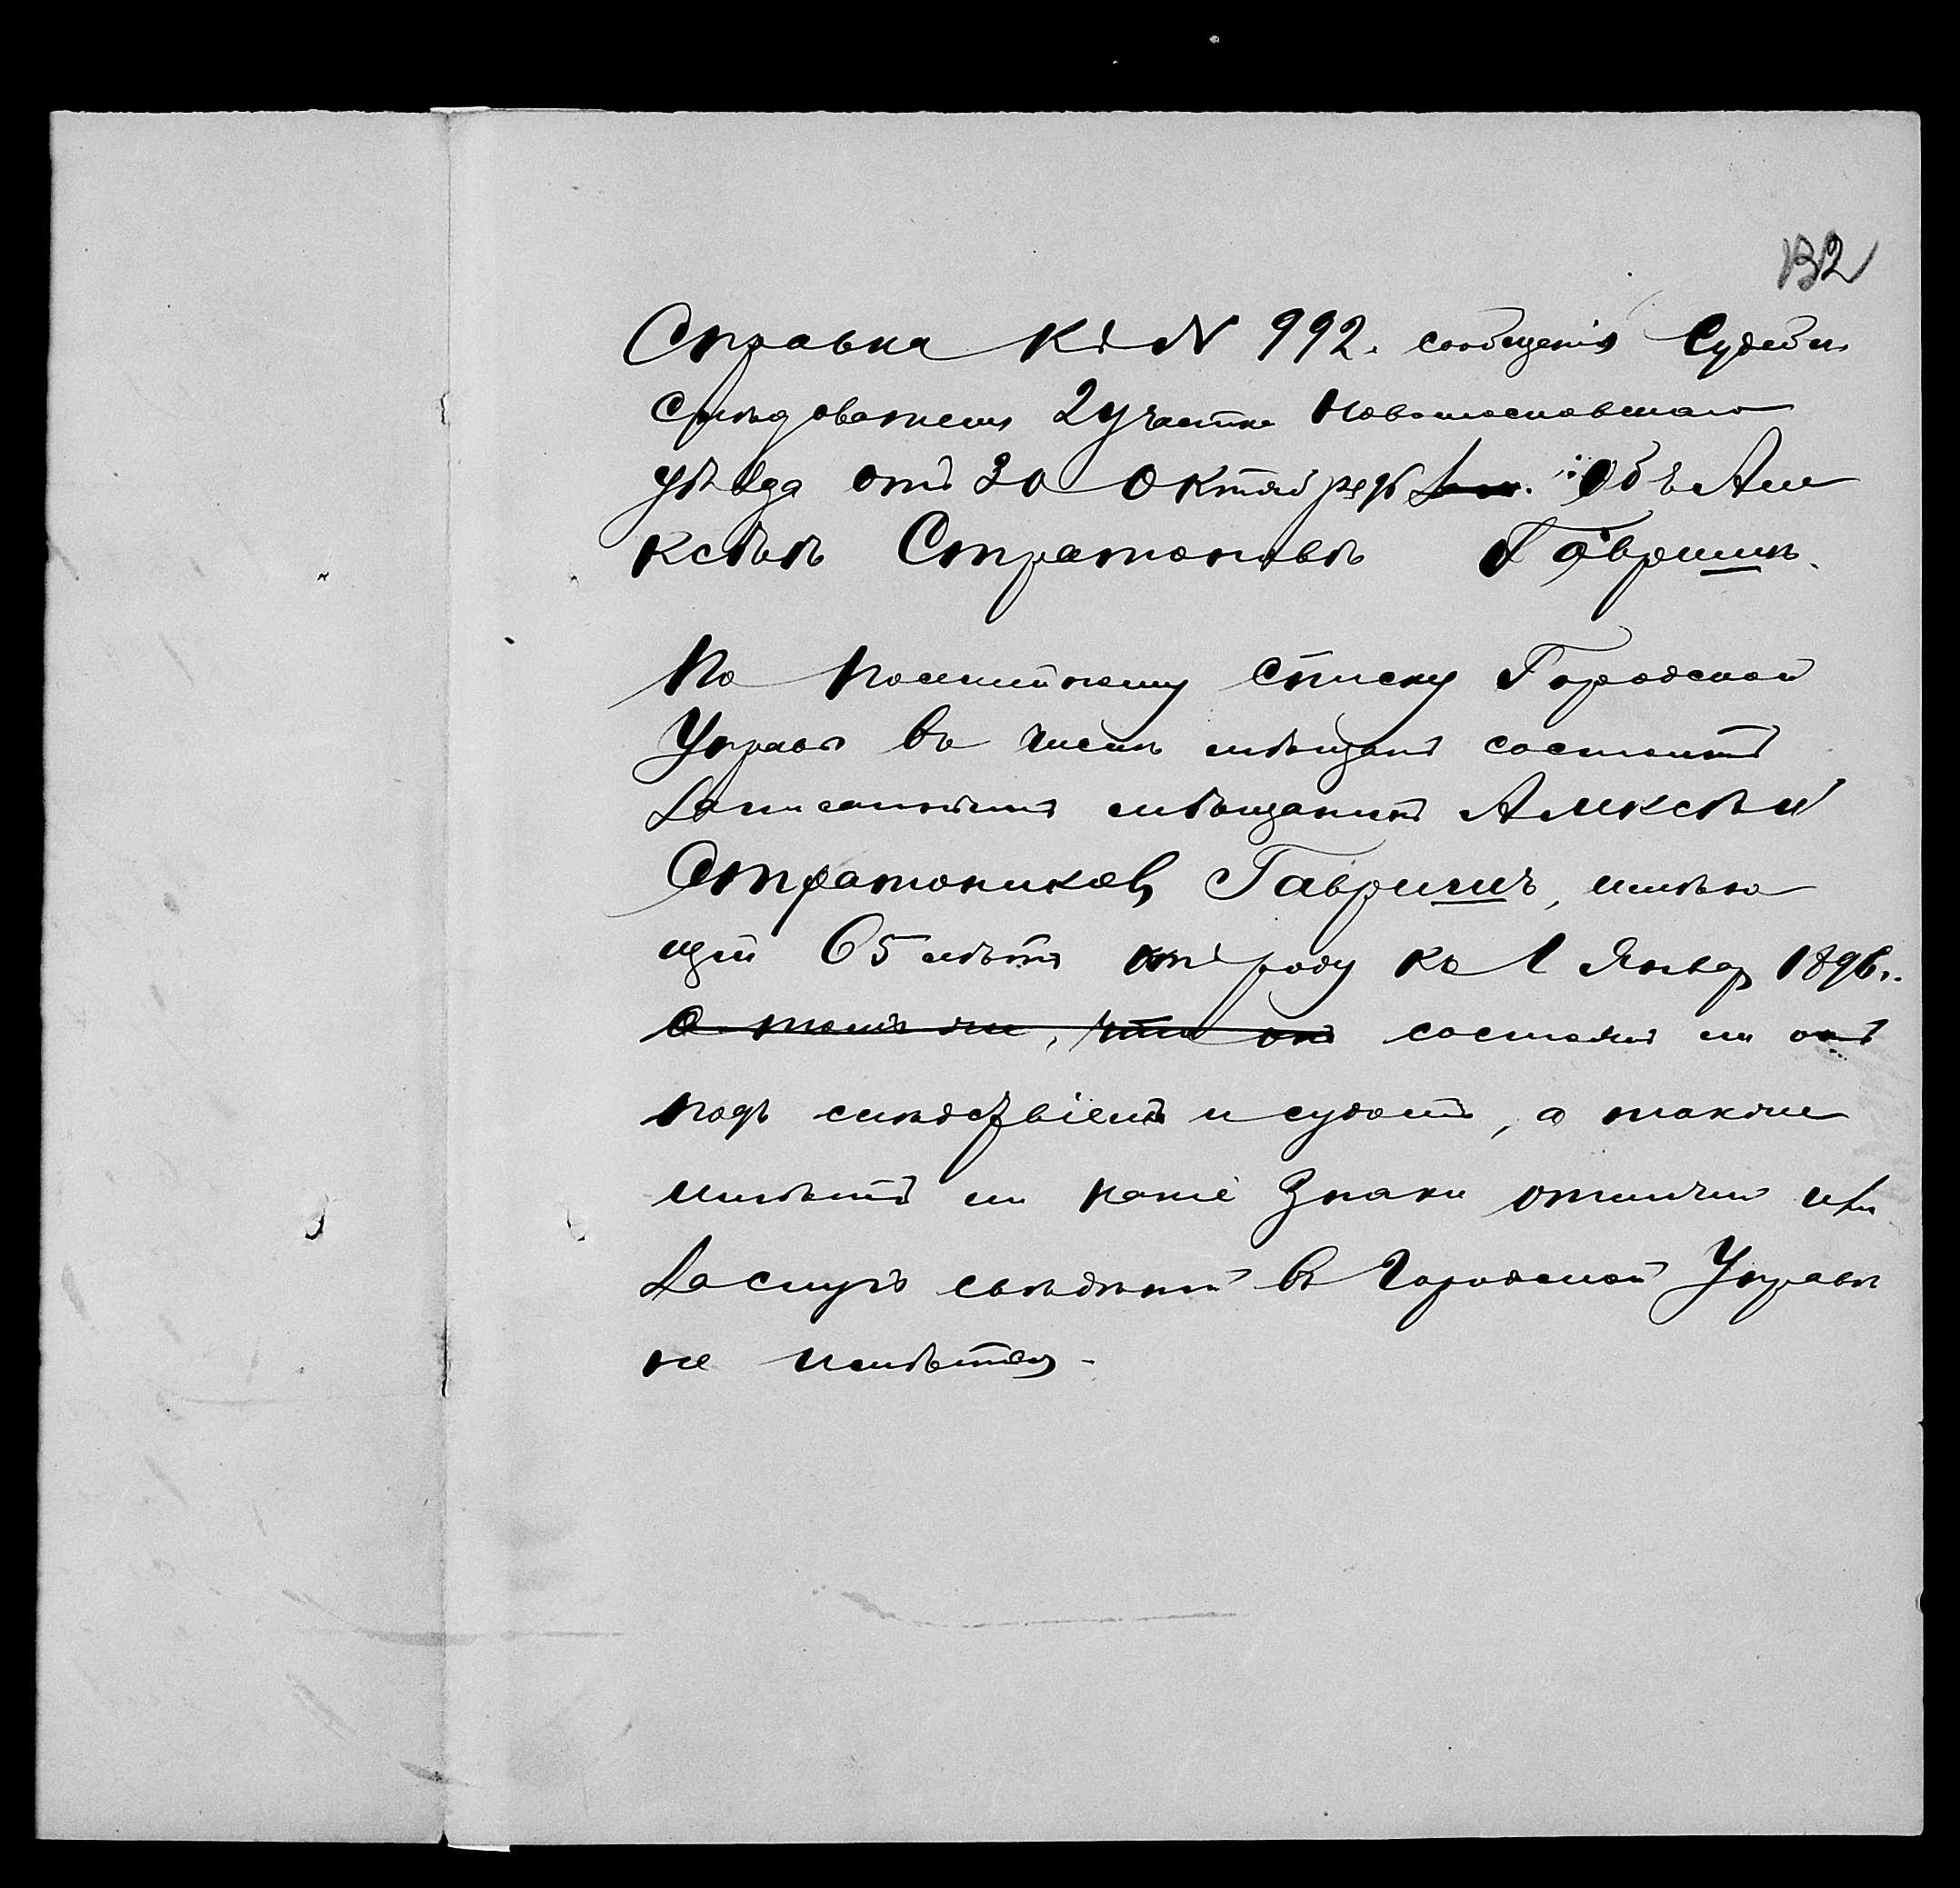 132
Справка къ N 992. сообщенія Судебн.
Слѣдователя 2 участка Новомосковскаго
уѣзда отъ 30 Октября 96 Объ Але
ксѣѣ Стратоновѣ Гавришѣ.
По посемейному списку Городской
Управы въ числѣ мѣщанъ состоитъ
записаннымъ мѣщанинъ Алексѣй
Стратониковъ Гавришъ, имѣю
щій 65 лѣтъ отъ роду къ 1 Январ 1896 г.
О томъ же, что онъ состоялъ ли онъ
подъ слѣдствіемъ и судомъ, а также
имѣетъ ли какіе Знаки отличія или
заслуги свѣдѣній въ Городской Управѣ
не имѣется -